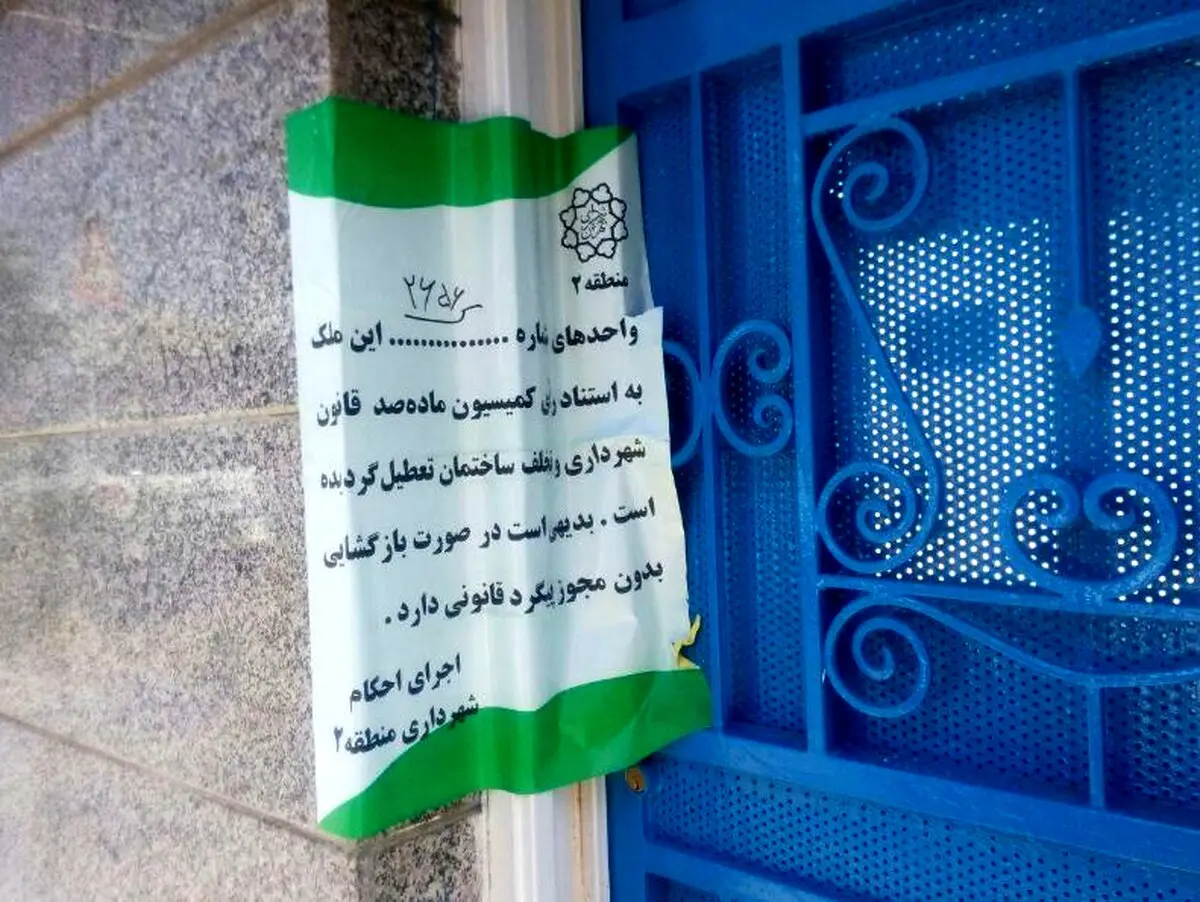 منطقه ۲
واحدهای شماره ............... این ملک
به استناد رای کمیسیون ماده‌صد قانون
شهرداری و تخلف ساختمان تعطیل گردیده
است . بدیهی است در صورت بازگشایی
بدون مجوز پیگرد قانونی دارد .
اجرای احکام
شهرداری منطقه ۲